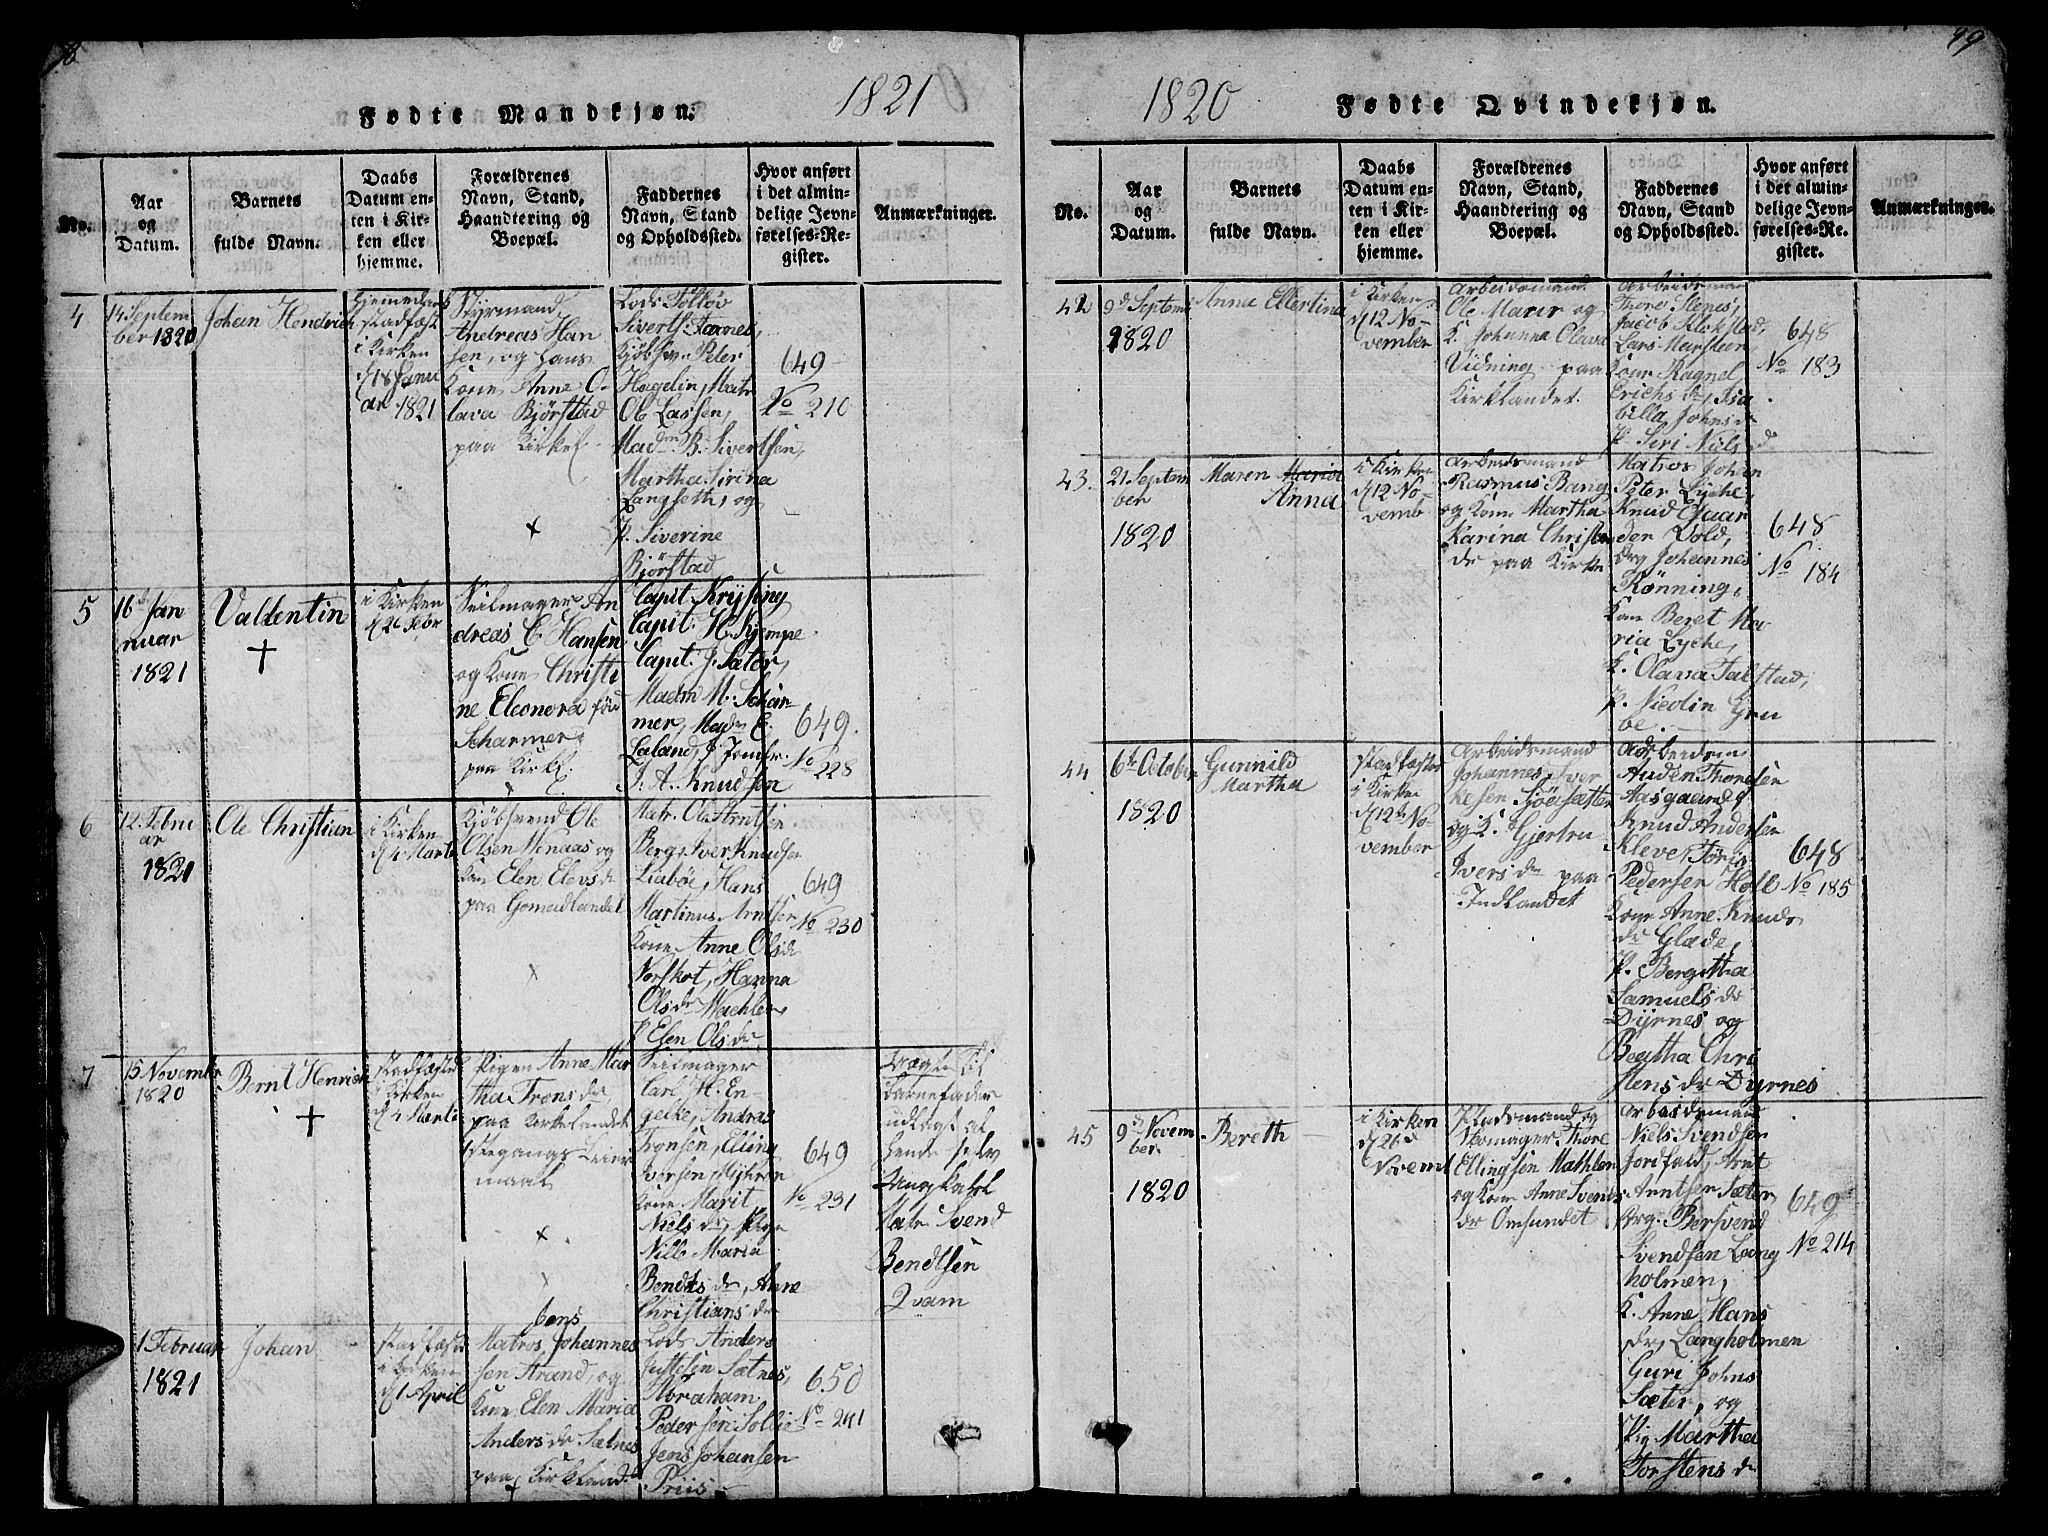 49
Fødte Mandkjøn.
1821
No.
Aar
og
Datum.
Barnets
fulde Navn.
Daabs
Datum en-
ten i Kir-
ken eller
hjemme.
Forældrenes
Navn, Stand,
Haandtering og
Boepæl.
Faddernes
Navn, Stand
og Opholdssted.
Hvor anført
i det almin-
delige Jevn-
førelses-Re-
gister.
Anmærkninger.
4
14 Septem
ber 1820
Johan Hendrich
stadfæst
i Kirken
d 18 Janu
ar 1821
Styrmand
Andreas Han
sen, og hans
Kone Anne O-
lava Bjørstad
paa Kirkel.
Lods Tolløv
Siverts. Taxnes,
Kjøbsv. Peter
Hagelin, Matr
Ole Lassen,
Madm B. Sivertsen,
Martha Sirina
Langseth, og
P. Siverine
Bjørstad
649
No 210
5
16 de Jan
nuar
1821
Valdentin
i Kirken
d 26 Febr
Seilmager An
dreas C Hansen
og Kone Christi
ne Eleonora fød
Scharmer
paa Kirkl.
Capit. Krysing
Capit. H. Kjempe
Capit. J. Sater,
Madm M. Schar-
mer, Madm C.
Laland, J. Jomfr.
J. A. Knudsen
649.
No 228
6
12. Febru
ar
1821
Ole Christian
i Kirken
d 4 Marti
Kjøbsvend Ole
Olsen Monaas og
Kone Elen Elevs dr
paa Gomadlandet
Matr. Ole Knutsen
Berg, Iver Knudsen
Liabøe, Hans
Martinus Arntsen
Kone Anne Ols dr
Norskot, Hanna
Ols dr Machlen,
P Elen Ols dr
649
No 230
7
15 Novembr
1820
Bernt Henrich
stadfæstet
i Kirken
d 4 Marti
Pigen Anne Mar
tha Trons dr
paa Kirkelandet
1stegangs Leier
maal
Seilmager
Carl H. En-
gelke, Andras
Tronsen, Elling
Iversen Myhren
Kone Marit
Niels dr, Pige
Nille Maria
Bendts dr, Anne
Christians dr
649
No 231
Barnefader
udlagt af
hende selv
Ungkarl
Matr Svend
Bendtsen
Qvam
1 Februar
1821
Johan
stadfæst
i Kirken
d 1 April
Jens
Matros Johannes
sen Strand, og
Kone Elen Maria
Anders dr Sætnes
paa Kirkland.
Lods Anders
Juttesen Sætnes,
Abraham
Pedersen Sollie
Jens Johansen
Priis
650
No 241
1820
Fødte Qvindekjøn.
No.
Aar
og
Datum.
Barnets
fulde Navn.
Daabs
Datum en-
ten i Kir-
ken eller
hjemme.
Forældrenes
Navn, Stand,
Haandtering og
Boepæl.
Faddernes
Navn, Stand
og Opholdssted.
Hvor anført
i det almin-
delige Jevn-
førelses-Re-
gister.
Anmærkninger.
42
9 de Septemb
1820
Anna Ellertina
i Kirken
d 12 No-
vember
Arbeidsmand
Ole Maur og
K. Johanna Olava
Vidning paa
Kirklandet.
Arbeidsman
Thore Stenes,
Jacob Klokstad,
Lars Marsteen,
Kone Ragnel
Erichs dr, Isa
billa Johns dr
P. Siri Niels d
648
No 183
43.
21 Septem
ber
1820
Maren Maria
Anna
i Kirken
d 12 No-
vemb
Arbeidsmand
Rasmus Bang
og Kone Martha
Karina Christen
dr paa Kirke
Matros Johan
Peter Lyche,
Knud Gaar
den Vold,
Drg Johannes
Rønning,
Kone Beret Ma-
ria Lyche,
K. Olava Talstad,
P. Nicolin Gru
be
648
No 184
44
6te October
1820
Gunnild
Martha
stadfæstet
i Kirken
d 12te No-
vember
Arbeidsmand
Johannes Iver
kesen Sjøesætter
og K. Gjertru
Ivers dr paa
Indlandet
Arbeidsm:
Auden Thoresen
Aasgaard,
Knud Andersen
Kleve, Tøris
Pedersen Holl
Kone Anne Knuds
dr Glade,
P. Bergitha
Samuels dr
Dyrnes og
Beatha Chri
stens dr Dyrnes
648
No 185
45
9 de Novem
ber
1820
Bereth
i Kirken
d 26 d
Novembr
Pladsmand og
Skomager Thore
Ellingsen Mæhlen
og Kone Anne Svends
dr Omsundet
Arbeidsmand
Niels Svendsen
Jordfald, Arnt
Arntsen Sæter
Drg. Bersvend
Svendsen Lang
holmen,
K. Anne Hans
dr, Langholmen
Guri Johns
Sæter, og
Pig Martha
Torstens dr
649
No 214